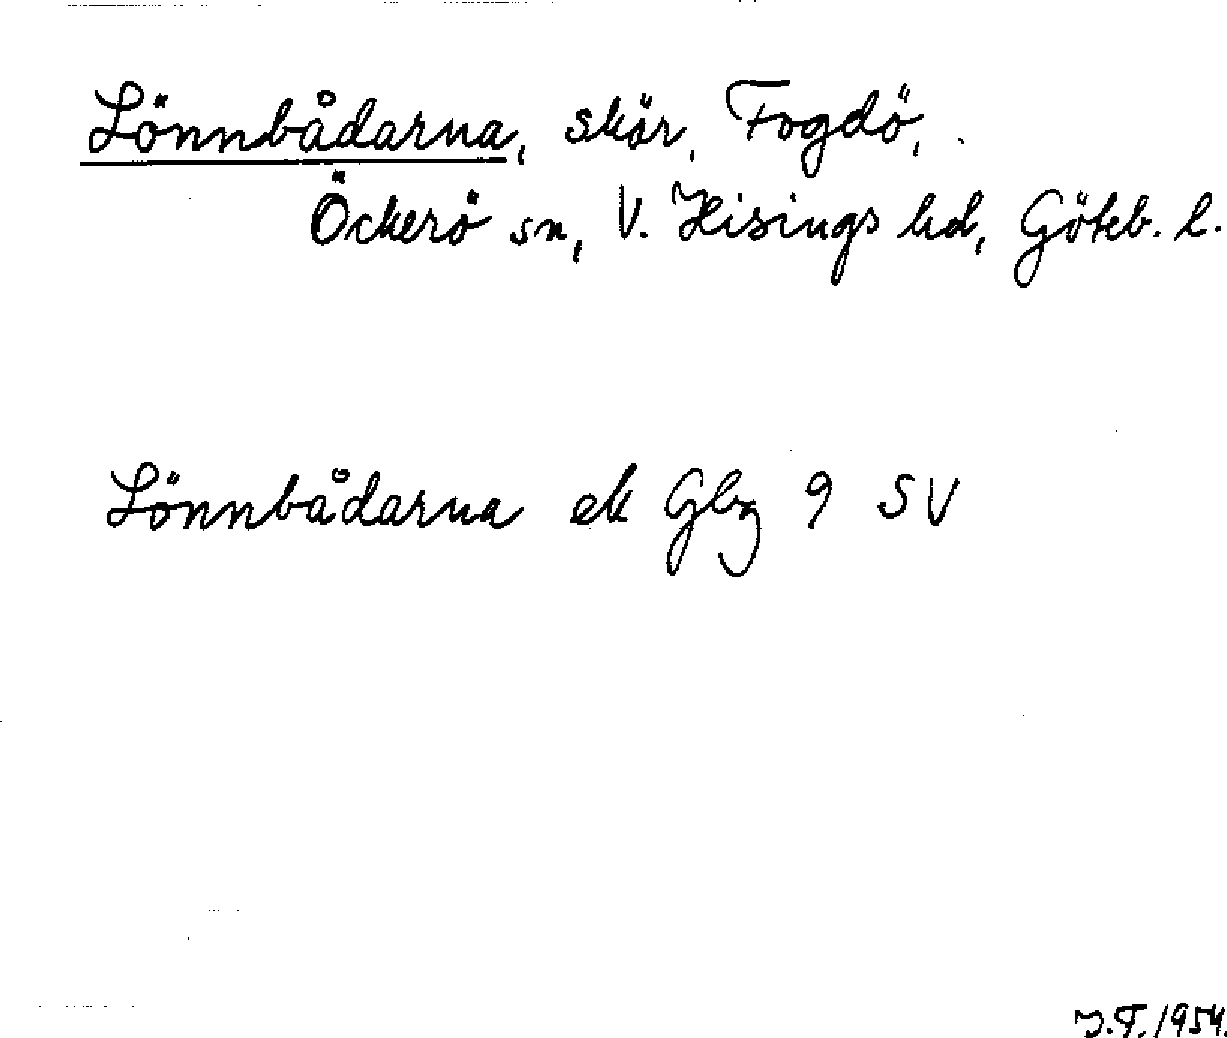 Lönnbådarna, skär, Fogdö,
Öckerö sn, V. Hisings hd, Göteb. l.
Lönnbådarna ek Gbg 9 SV
J.T. 1954.